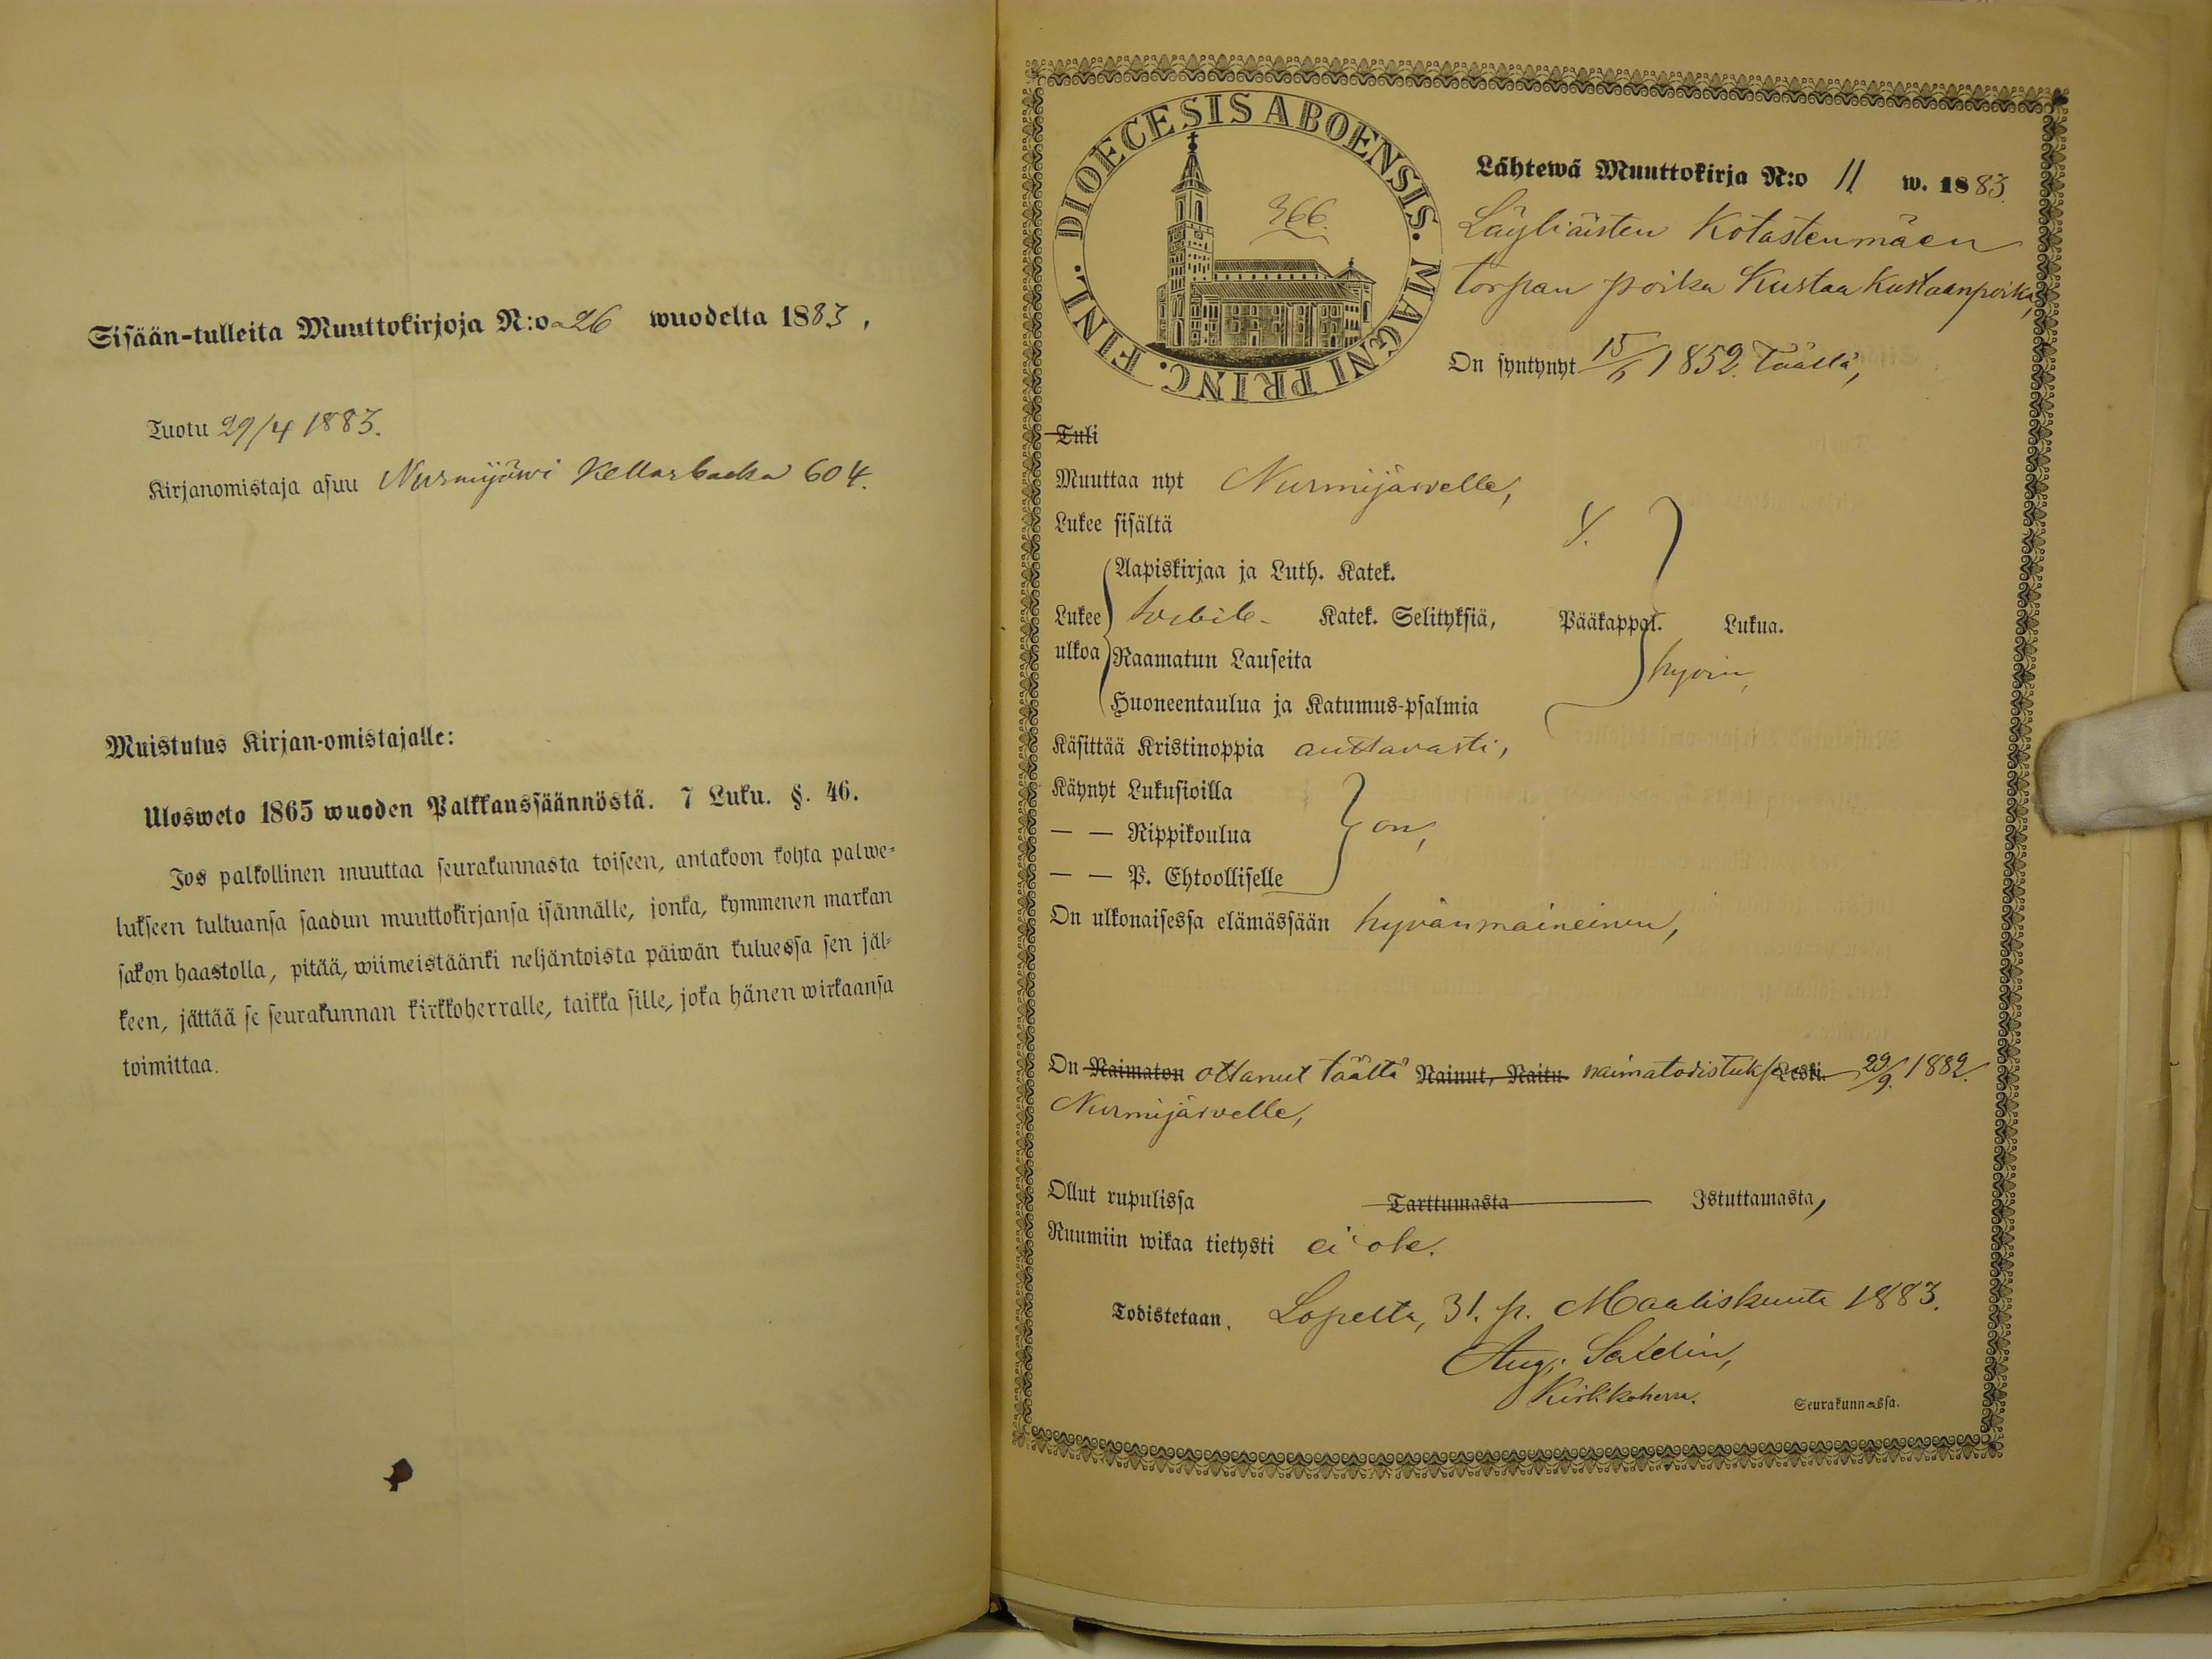 Sisään-tulleita Muuttokirjoja N:o 26 wuodelta 1883,
Tuotu 29/4 1883.
Kirjanomistaja asuu Nurmijärwi Kellarbacka 604.
Muistutus Kirjan-omistajalle:
Ulosweto 1865 wuoden Palkkaussäännöstä. 7 Luku. §. 46.
Jos palkollinen muuttaa seurakunnasta toiseen, antakoon kohta palwe-
lukseen tultuansa saadun muuttokirjansa isännälle, jonka, kymmenen markan
sakon haastolla, pitää, wiimeistäänki neljäntoista päiwän kuluessa sen jäl-
keen, jättää se seurakunnan kirkkoherralle, taikka sille, joka hänen wirkaansa
toimittaa.
DIOECESIS ABOENSIS. MAGNI PRINC. FINL.
366.
Lähtewä Muuttokirja N:o 11 w. 1883.
Läyliäisten Kotastenmäen
torpan poika Kustaa Kustaanpoika,
On syntynyt 15/6 1852. Täällä,
Tuli
Muuttaa nyt Nurmijärvelle,
Lukee sisältä y.
Aapiskirjaa ja Luth. Katek.
Lukee Katek. Selityksiä, Pääkappal. Lukua.
ulkoa Raamatun Lauseita hyvin,
Huoneentaulua ja Katumus-psalmia
Käsittää Kristinoppia auttavasti,
Käynyt Lukusioilla
— — Rippikoulua on,
— — P. Ehtoolliselle
On ulkonaisessa elämässään hyvänmaineinen,
On Naimaton ottanut täältä Nainut, Naitu naimatodistuksen Leski 29/9. 1882.
Nurmijärvelle,
Ollut rupulissa Tarttumasta Istuttamasta,
Ruumiin wikaa tietysti ei ole.
Todistetaan, Lopelta, 31. p. Maaliskuuta 1883.
Aug. Saldin,
Kirkkoherra. Seurakunnassa.